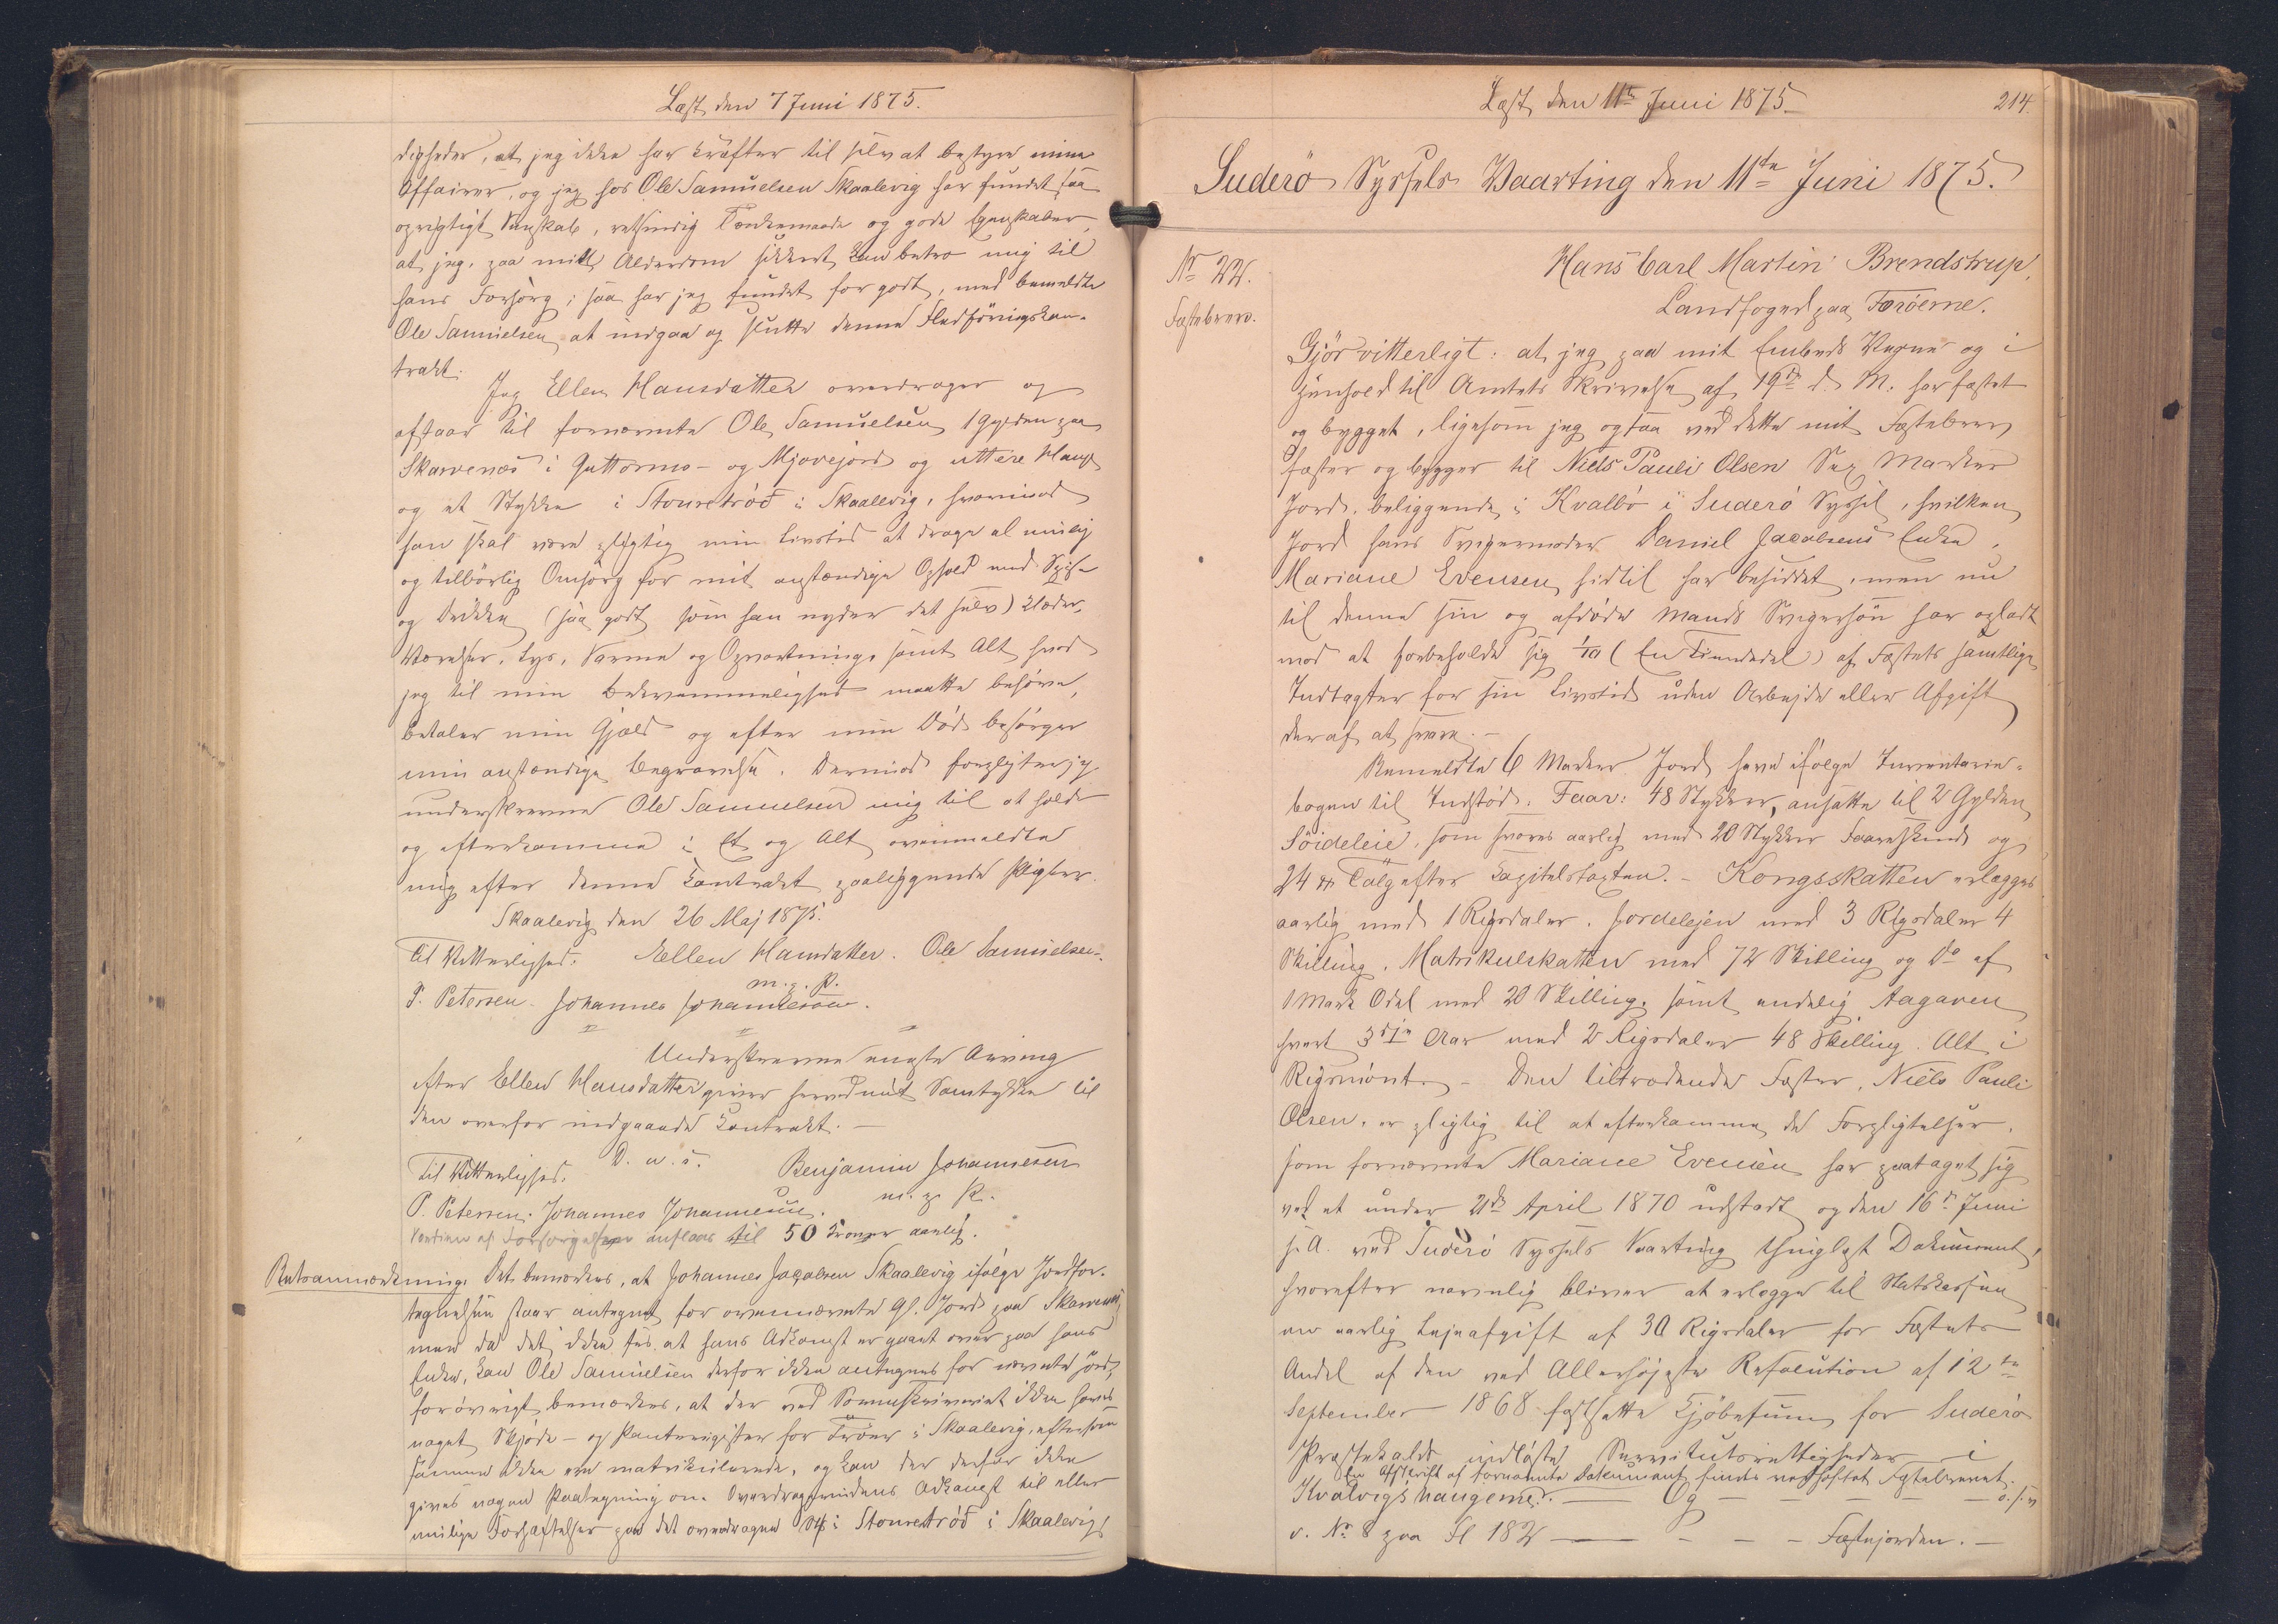 Læst den 7 Juni 1875.
digheder, at jeg ikke har Kræfter til selv at bestyre mine
Affairer, og jeg hos Ole Samuelsen Skaalevig har fundet saa
oprigtigt Venskab, retsindig Tænkemaade og gode Egenskaber,
at jeg, paa mit Alderdom sikkert kan betro mig til
hans Forsörg; saa har jeg fundet for godt, med bemeldte
Ole Samuelsen at indgaa og slutte denne Fledföringskon-
trakt.
Jeg Ellen Hansdatter overdrager og
afstaar til fornævnte Ole Samuelsen 1 Gylden paa
Skarvenæs i Guttorms- og Mjovejord og uttere Haug
og et Stykke i Stouretröd i Skaalevig, hvorimod
han skal være pligtig min Livstid at drage al mulig
og tilbörlig Omsorg for mit anstændige Ophold med Spise
og Drikke (saa godt som han nyder det selv) Klæder,
Værelser, Lys, Varme og Opvartning, samt Alt hvad
jeg til min Bekvemmelighed maatte behöve,
betaler min Gjæld og efter min Död besörger
min anstændige Begravelse. Derimod forpligter jeg
underskrevne Ole Samuelsen mig til at holde
og efterkomme i Et og Alt ovenmeldte
mig efter denne Kontrakt paaliggende Pligter.
Skaalevig den 26 Maj 1875.
Til Vitterlighed. Ellen Hansdatter. Ole Samuelsen.
m. p. P.
P. Petersen. Johannes Johannesen.
Underskrevne eneste Arving
efter Ellen Hansdatter giver herved mit Samtykke til
den overfor indgaaede Kontrakt.
D. u. s.
Til Vitterlighed. Benjamin Johannesen
P. Petersen. Johannes Johannesen. m. p. P.
Værdien af Forsørgelsen anslaas til 50 Kroner aarlig.
Retsanmærkning. Det bemærkes, at Johannes Jacobsen Skaalevig ifölge Jordfor-
tegnelsen staar antegnet for ovennævnte Gl. Jord paa Skarvenæs,
men da det ikke sees at hans Adkomst er gaaet over paa hans
Enke, kan Ole Samuelsen derfor ikke antegnes for nævnte Jord,
forövrigt bemærkes, at der ved Sorenskriveriet ikke haves
noget Skjöde- og Panteregister for Tröer i Skaalevig, eftersom
samme ikke ere matrikulerede, og kan der derfor ikke
gives nogen Paategning om Overdragerindens Adkomst til eller
mulige Forhæftelser paa det overdragne St. i Stouretröd i Skaalevig.
Læst den 11te Juni 1875
214.
Suderö Syssels Vaarting den 11te Juni 1875.
No 22.
Fæstebrev.
Hans Carl Martin Brendstrup,
Landfoged paa Færöerne.
Gjör vitterligt: at jeg paa mit Embeds Vegne og i
Henhold til Amtets Skrivelse af 19de d. M. har fæstet
og bygget, ligesom jeg ogsaa ved dette mit Fæstebrev
fæster og bygger til Niels Pauli Olsen Sex Marker
Jord, beliggende i Kvalbö i Suderö Syssel, hvilken
Jord hans Svigermoder Daniel Jacobsens Enke
Mariane Evensen hidtil har besiddet, men nu
til denne sin og afdöde Mands Svigersön har opladt
mod at forbeholde sig 1/10 (En Tiendedel) af Fæstets samtlige
Indtægter for sin Livstid uden Arbejde eller Afgift
deraf at svare.
Bemeldte 6 Marker Jord have ifölge Inventarie-
bogen til Indstöd: Faar: 48 Stykker, ansatte til 2 Gylden
Söideleie, som svares aarlig med 20 Stykker Faareskind og
24 ℔ Talg efter Kapitelstaxten. - Kongsskatten erlægges
aarlig med 1 Rigsdaler. Jordelejen med 3 Rigsdaler 4
Skilling. Matrikulskatten med 72 Skilling og Do af
1 Mark Odel med 20 Skilling, samt endelig Aagaven
hvert 3die Aar med 2 Rigsdaler 48 Skilling. Alt i
Rigsmönt. - Den tiltrædende Fæster, Niels Pauli
Olsen, er pligtig til at efterkomme de Forpligtelser,
som fornævnte Mariane Evensen har paataget sig
ved et under 21de April 1870 udstædt og den 16de Juni
s. A. ved Suderö Syssels Vaarting thinglæst Dokument,
hvorefter navnlig bliver at erlægge til Statskassen
en aarlig Lejeafgift af 30 Rigsdaler for Fæstets
Andel af den ved Allerhöjeste Resolution af 12te
September 1868 fastsatte Kjöbesum for Suderö
Præstekalds indlöste Servitutsrettigheder i
En Afskrift af fornævnte Dokument findes vedhæftet Fæstebrevet.
Kvalvigs haugerne. — Og — — — — o. s. v.
v. No 8 paa Fl 182 — — — — Fæstejorden. —